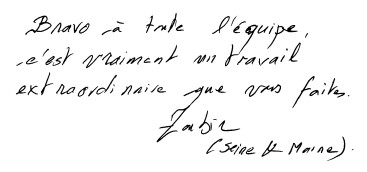 Bravo à toute l'équipe,
c'est vraiment un travail
extraordinaire que vous faites.
(Seine & Marne).